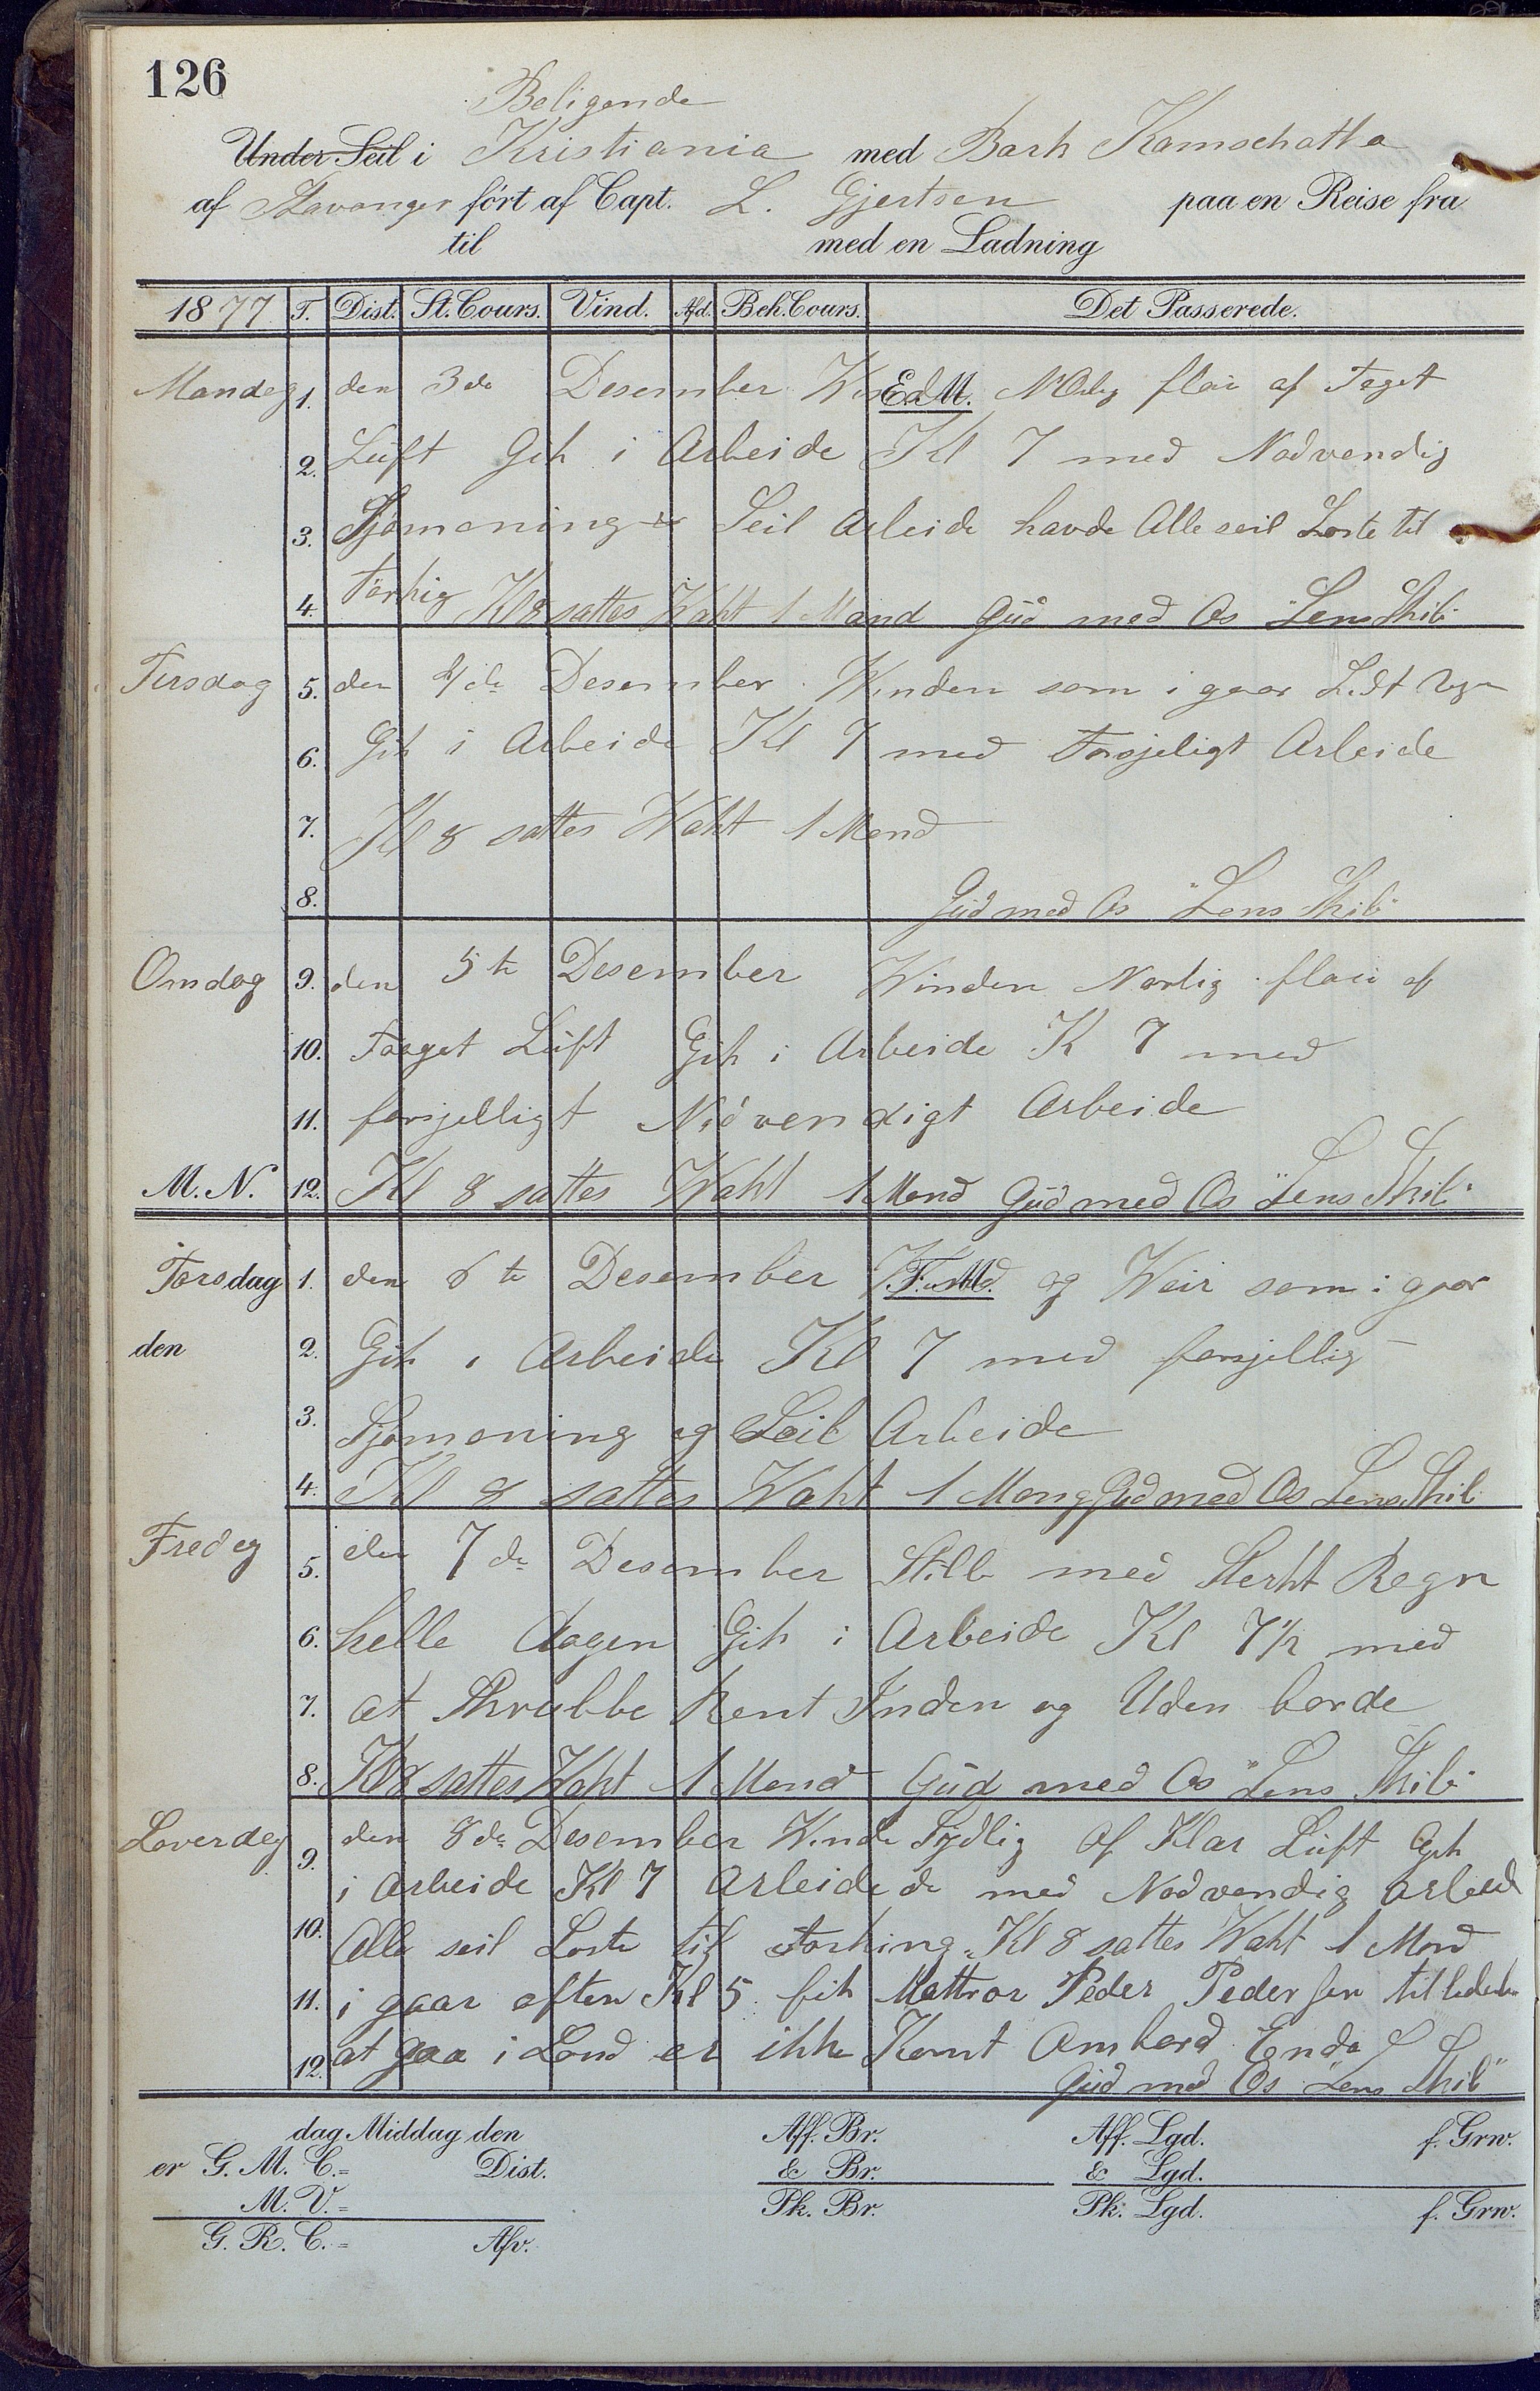 126
Beligende
Under Seil i Kristiania med Bark Kamschatka
af Stavanger fört af Capt. L. Gjertsen paa en Reise fra
til med en Ladning
1877 T. Dist. St. Cours. Vind. Afd. Beh. Cours. Det Passerede.
Mandag 1. den 3de Desember E.M. NOlig flau af Taget
2. Luft Gik i Arbeide Kl 7 med Nodvendig
3. Sjömaning & Seil Arbeide havde Alle seil Loste til
4. Törkig Kl 8 sattes Vakt 1 Mand Gud med Os "Lens Skib"
Tirsdag 5. den 4de Desember Winden som i gaar Lidt
6. Gik i Arbeide Kl 7 med Forsjeligt Arbeide
7. Kl 8 sattes Wakt 1 Mand
8. Gud med Os "Lens Skib"
Onsdag 9. den 5te Desember Winden Nordlig flau af
10. Taaget Luft Gik i Arbeide K 7 med
11. forsjelligt Nödvendigt Arbeide
M. N. 12. Kl 8 sattes Wakt 1 Mand Gud med Os "Lens Skib"
Torsdag 1. den 6te Desember F.M. og Veir som i gaar
den 2. Gik i Arbeide Kl 7 med forsjellig
3. Sjömaning og Seil Arbeide
4. Kl 8 sattes Wakt 1 Mang Gud med Os Lens Skib
Fredag 5. den 7de Desember Stille med Sterkt Regn
6. helle dagen Gik i Arbeide Kl 7½ med
7. at Skrubbe Rent Inden og Uden borde
8. Kl 8 sattes Wakt 1 Mand Gud med Os "Lens Skib"
Loverdag 9. den 8de Desember Winde Sydlig af Klar Luft Gik
i Arbeide Kl 7 Arbeidede med Nodvendig Arbeid
10. Alle seil Loste til Torking. Kl 8 sattes Wakt 1 Mand
11. i gaar aften Kl 5 fik Mattros Peder Pedersen tilladelse
12. at gaa i Land er ikke Komt Ombord Enda
Gud med Os "Lens Skib"
dag Middag den Aff. Br. Aff. Lgd. f. Grw.
er G. M. C.= Dist. & Br. & Lgd.
M. V.= Pk. Br. Pk. Lgd. f. Grw.
G. R. C.= Afv.